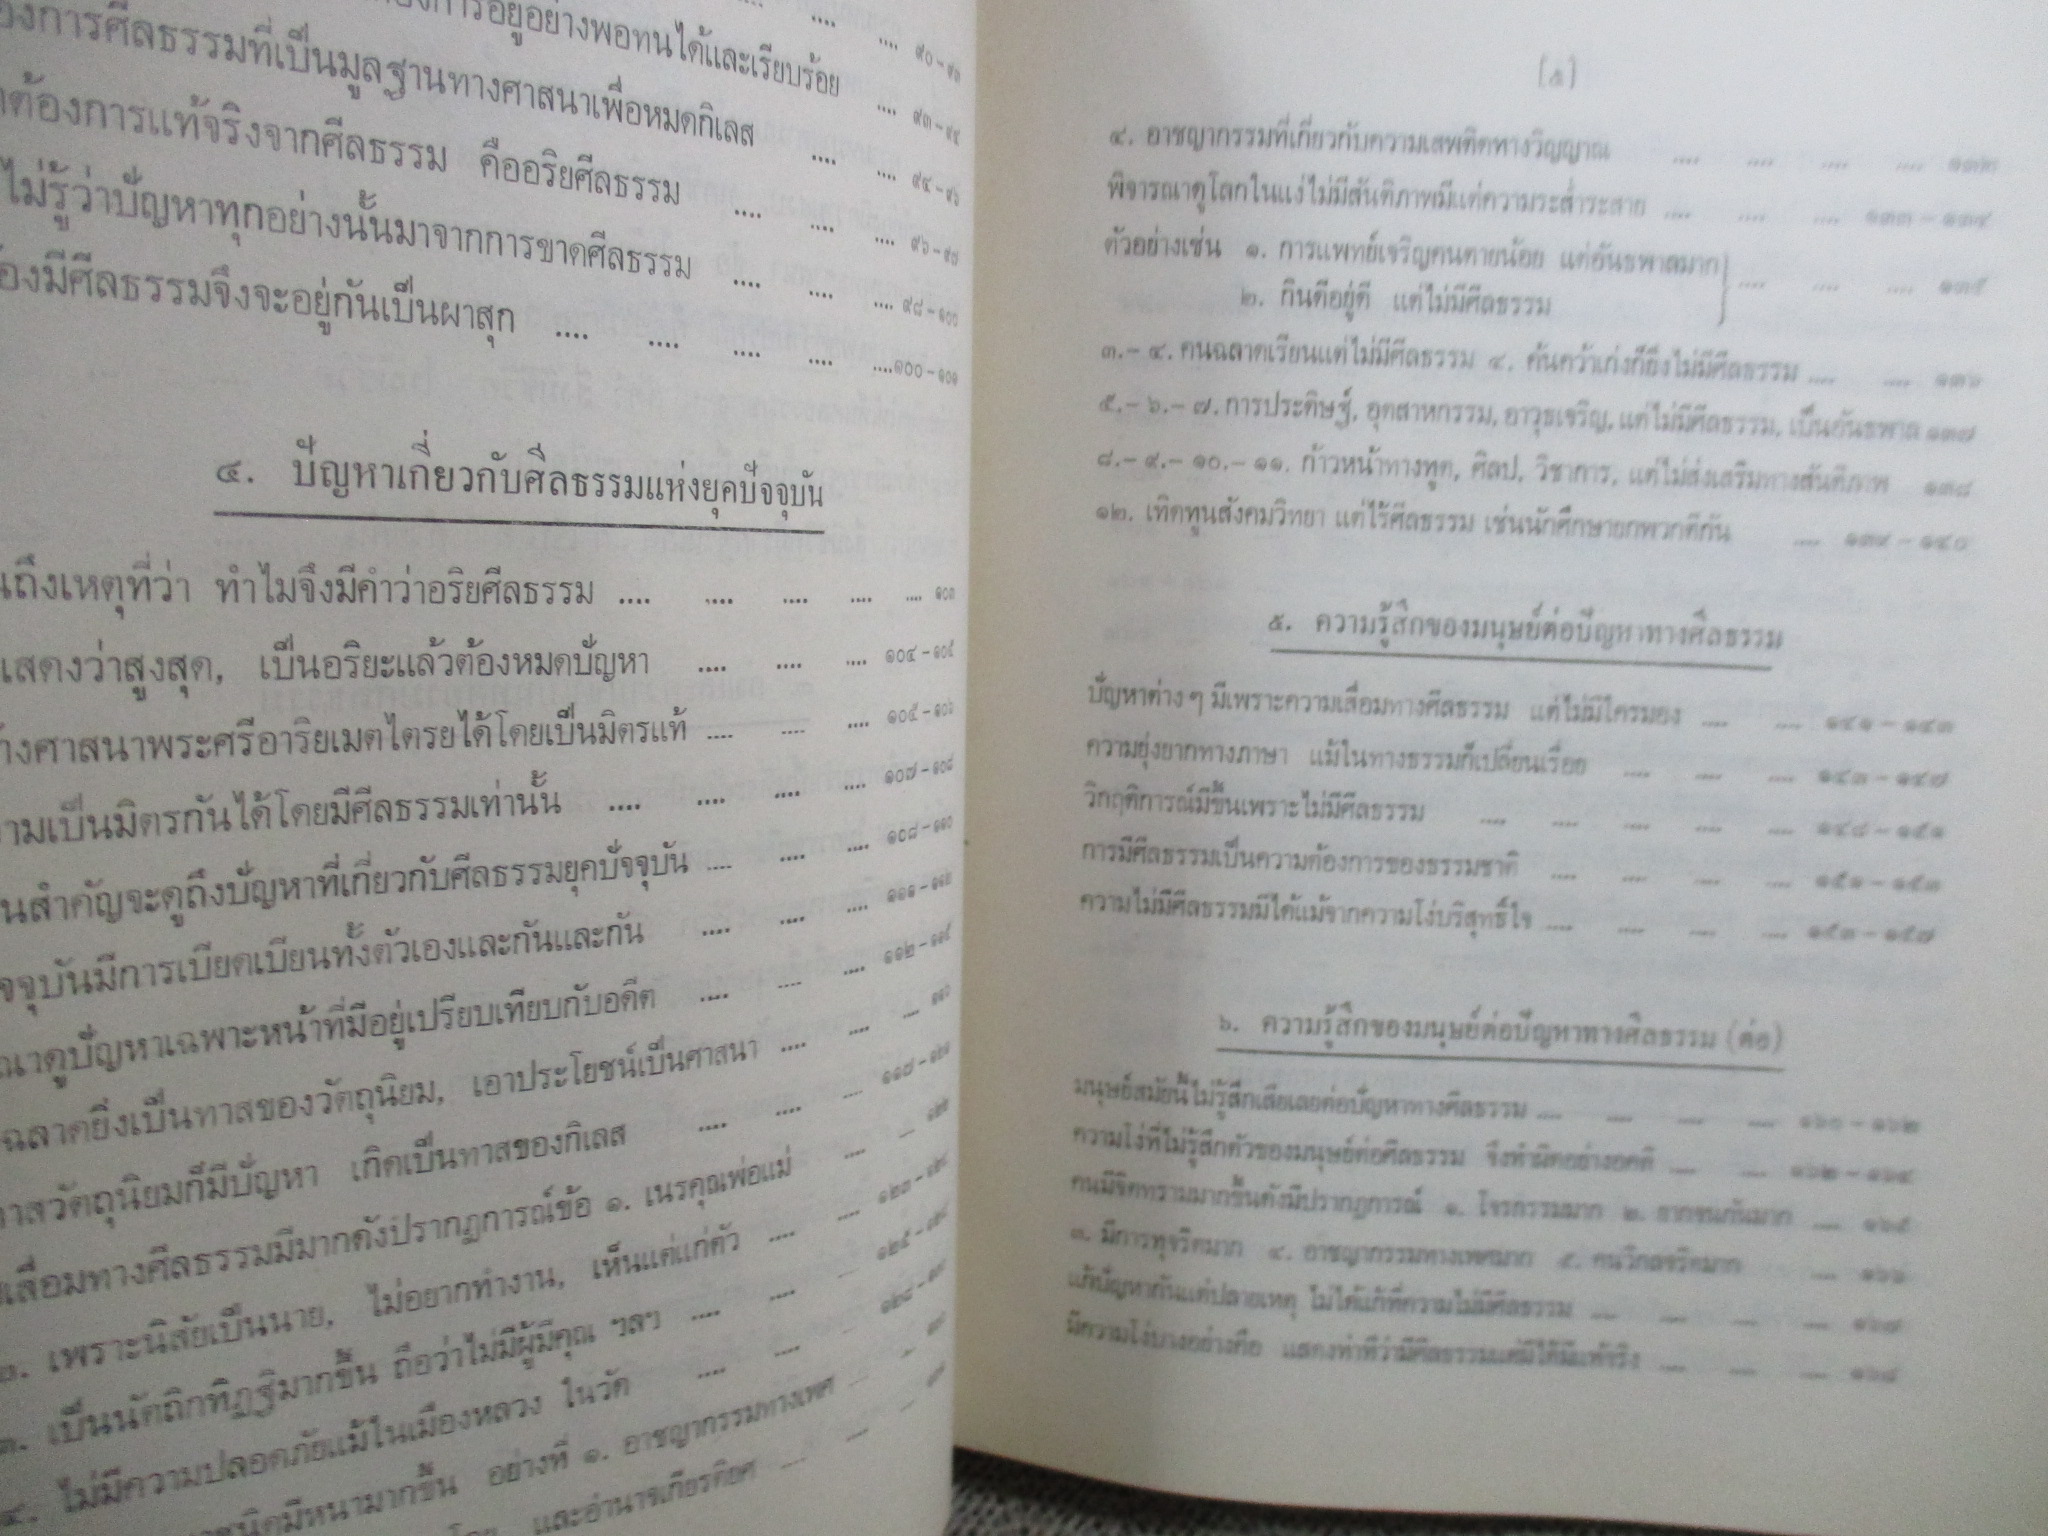 องการอยู่อย่างพอทนได้และเรียบร้อย .... .... ๙๐-๙๓
องการศีลธรรมที่เป็นมูลฐานทางศาสนาเพื่อหมดกิเลส .... .... ๙๓-๙๔
ต้องการแท้จริงจากศีลธรรม คืออริยศีลธรรม .... .... ๙๔-๙๖
ไม่รู้ว่าปัญหาทุกอย่างนั้นมาจากการขาดศีลธรรม .... .... .... ๙๖-๙๗
องมีศีลธรรมจึงจะอยู่กันเป็นผาสุก .... .... .... .... ....๑๐๐-๑๐๑
๔. ปัญหาเกี่ยวกับศีลธรรมแห่งยุคปัจจุบัน
นถึงเหตุที่ว่า ทำไมจึงมีคำว่าอริยศีลธรรม .... .... .... .... .... ๑๐๓
แสดงว่าสูงสุด, เป็นอริยะแล้วต้องหมดปัญหา .... .... .... ๑๐๔-๑๐๕
างศาสนาพระศรีอาริยเมตไตรยได้โดยเป็นมิตรแท้ .... .... .... ๑๐๕-๑๐๖
วามเป็นมิตรกันได้โดยมีศีลธรรมเท่านั้น .... .... .... .... ๑๐๗-๑๐๘
นสำคัญจะดูถึงปัญหาที่เกี่ยวกับศีลธรรมยุคปัจจุบัน .... .... .... ๑๐๘-๑๑๐
จจุบันมีการเบียดเบียนทั้งตัวเองและกันและกัน .... .... ....
ณาดูปัญหาเฉพาะหน้าที่มีอยู่เปรียบเทียบกับอดีต .... .... .... ๑๑๒-๑๑๕
ฉลาดยิ่งเป็นทาสของวัตถุนิยม, เอาประโยชน์เป็นศาสนา .... .... ....
าสวัตถุนิยมก็มีปัญหา เกิดเป็นทาสของกิเลส .... .... ....
เสื่อมทางศีลธรรมมีมากดังปรากฏการณ์ข้อ ๑. เนรคุณพ่อแม่ .... ....
๒. เพราะนิสัยเป็นนาย, ไม่อยากทำงาน, เห็นแต่แก่ตัว .... ....
๓. เป็นนัตถิกทิฏฐิมากขึ้น ถือว่าไม่มีผู้มีคุณ ฯลฯ .... ....
๔. ไม่มีความปลอดภัยแม้ในเมืองหลวง ในวัด .... ....
ชนิดมีหนามากขึ้น อย่างที่ ๑. อาชญากรรมทางเพศ ....
และอำนาจเกียรติยศ ....
(๕)
๔. อาชญากรรมที่เกี่ยวกับความเสพติดทางวิญญาณ .... .... .... .... ๑๓๒
พิจารณาดูโลกในแง่ไม่มีสันติภาพมีแต่ความระส่ำระสาย .... .... .... ๑๓๓-๑๓๔
ตัวอย่างเช่น ๑. การแพทย์เจริญคนตายน้อย แต่อันธพาลมาก
๒. กินดีอยู่ดี แต่ไม่มีศีลธรรม .... .... .... ๑๓๕
๓.-๔. คนฉลาดเรียนแต่ไม่มีศีลธรรม ๔. ค้นคว้าเก่งก็ยิ่งไม่มีศีลธรรม .... .... ๑๓๖
๕.-๖.-๗. การประดิษฐ์, อุตสาหกรรม, อาวุธเจริญ, แต่ไม่มีศีลธรรม, เป็นอันธพาล ๑๓๗
๘.-๙.-๑๐.-๑๑. ก้าวหน้าทางทูต, ศิลป, วิชาการ, แต่ไม่ส่งเสริมทางสันติภาพ ๑๓๘
๑๒. เทิดทูนสังคมวิทยา แต่ไร้ศีลธรรม เช่นนักศึกษายกพวกตีกัน .... ๑๓๙-๑๔๐
๕. ความรู้สึกของมนุษย์ต่อปัญหาทางศีลธรรม
ปัญหาต่าง ๆ มีเพราะความเสื่อมทางศีลธรรม แต่ไม่มีใครมอง .... .... ๑๔๑-๑๔๓
ความยุ่งยากทางภาษา แม้ในทางธรรมก็เปลี่ยนเรื่อย .... .... .... ๑๔๓-๑๔๗
วิกฤติการณ์มีขึ้นเพราะไม่มีศีลธรรม .... .... .... .... .... ๑๔๘-๑๕๑
การมีศีลธรรมเป็นความต้องการของธรรมชาติ .... .... .... .... ๑๕๑-๑๕๓
ความไม่มีศีลธรรมมีได้แม้จากความโง่บริสุทธิ์ใจ .... .... .... .... ๑๕๓-๑๕๗
๖. ความรู้สึกของมนุษย์ต่อปัญหาทางศีลธรรม (ต่อ)
มนุษย์สมัยนี้ไม่รู้สึกเสียเลยต่อปัญหาทางศีลธรรม .... .... .... .... ๑๖๐-๑๖๒
ความโง่ที่ไม่รู้สึกตัวของมนุษย์ต่อศีลธรรม จึงทำผิดอย่างอคติ .... .... ๑๖๒-๑๖๔
คนมีจิตทรามมากขึ้นดังมีปรากฏการณ์ ๑. โจรกรรมมาก ๒. ฆากรรมกันมาก .... ๑๖๕
๓. มีการทุจริตมาก ๔. อาชญากรรมทางเพศมาก ๕. คนวิกลจริตมาก .... ๑๖๖
แก้ปัญหากันแต่ปลายเหตุ ไม่ได้แก้ที่ความไม่มีศีลธรรม .... .... .... ๑๖๗
มีความโง่บางอย่างคือ แสดงท่าทีว่ามีศีลธรรมแต่มิได้มีแท้จริง .... .... .... ๑๖๘